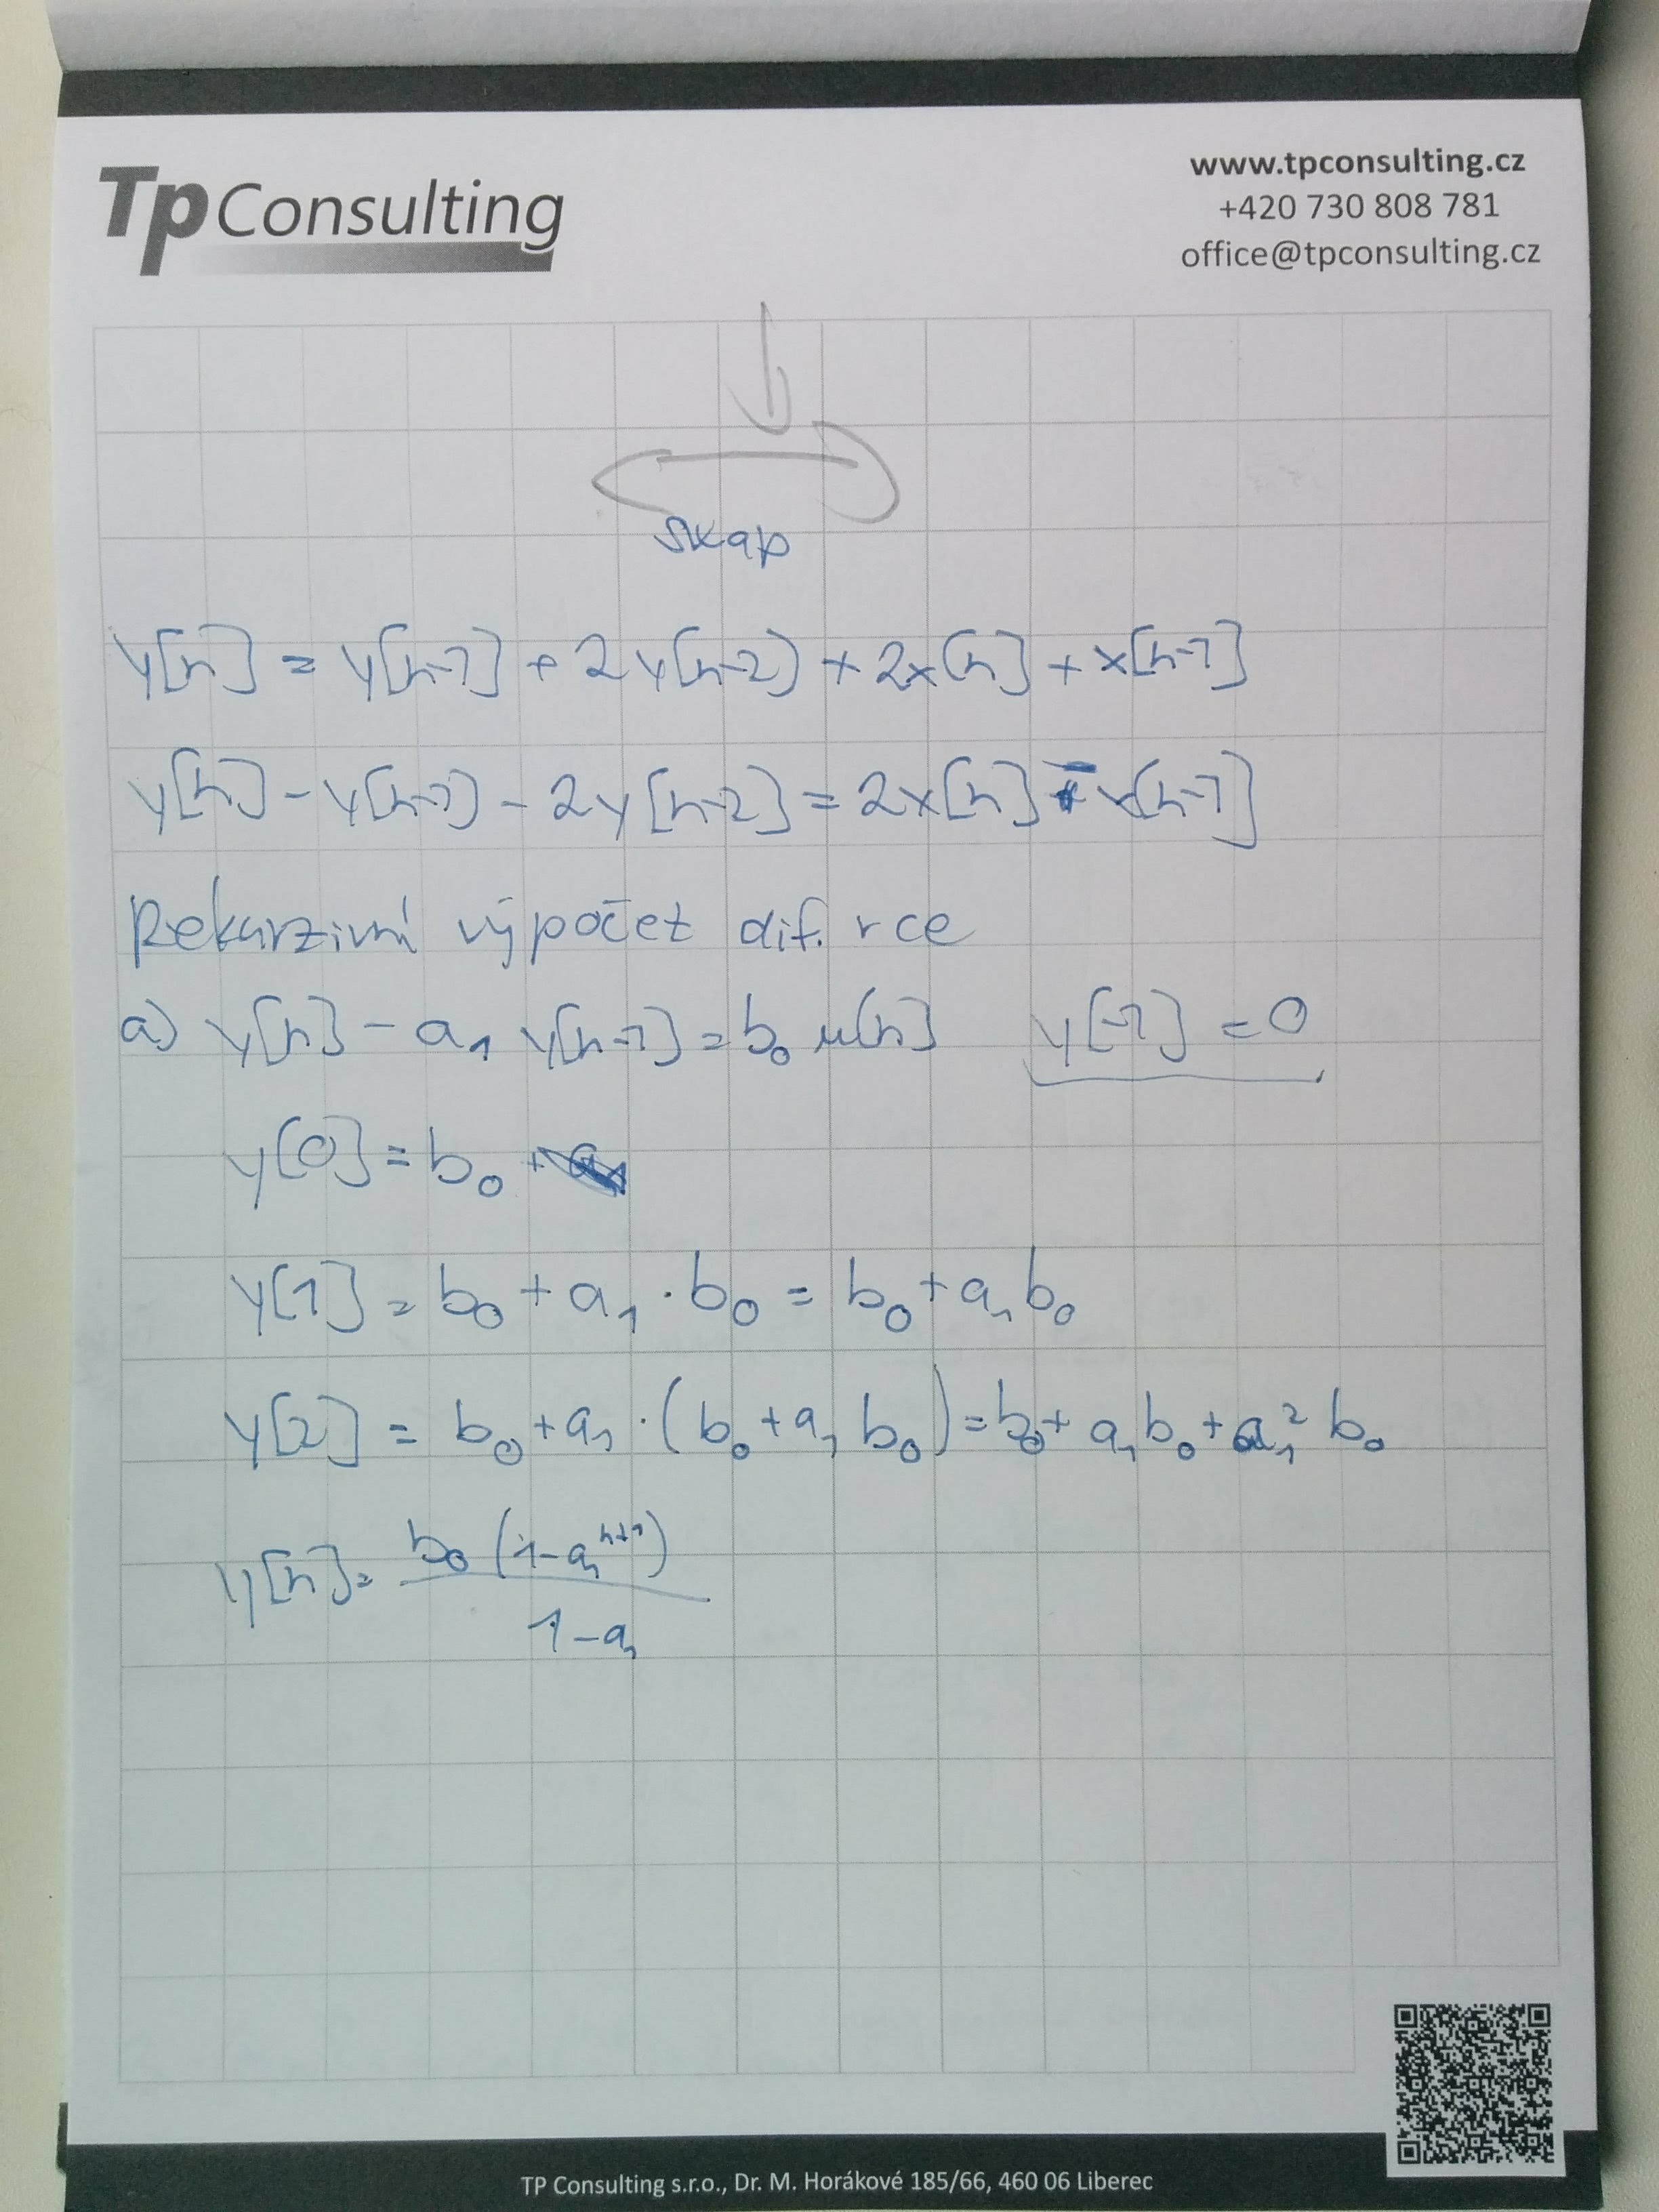 Tp Consulting
www.tpconsulting.cz
+420 730 808 781
office@tpconsulting.cz
swap
y[n] = y[n-1] + 2y[n-2] + 2x[n] + x[n-1]
y[n] - y[n-1] - 2y[n-2] = 2x[n] - x[n-1]
Rekurzivní výpočet dif. rce
a) y[n] - a₁ y[n-1] = b₀ u[n] y[-1] = 0
y[0] = b₀
y[1] = b₀ + a₁ · b₀ = b₀ + a₁ b₀
y[2] = b₀ + a₁ · (b₀ + a₁ b₀) = b₀ + a₁ b₀ + a₁² b₀
y[n] = b₀ (1-a₁ⁿ⁺¹)
1-a₁
TP Consulting s.r.o., Dr. M. Horákové 185/66, 460 06 Liberec